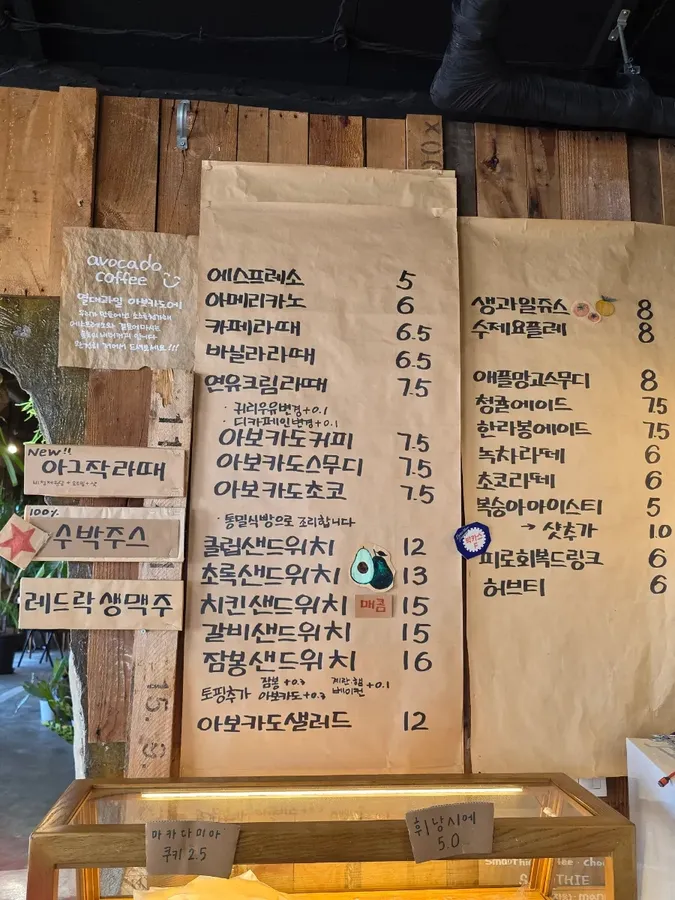 avocado
coffee
열대과일 아보카도에
New!!
아그작라떼
100%
수박쥬스
레드락 생맥주
에스프레소 5
아메리카노 6
카페라떼 6.5
바닐라라떼 6.5
연유크림라떼 7.5
· 귀리우유변경 +0.1
· 디카페인변경 +0.1
아보카도커피 7.5
아보카도스무디 7.5
아보카도초코 7.5
· 통밀식빵으로 조리합니다
클럽샌드위치 12
초록샌드위치 13
치킨샌드위치 매콤 15
갈비샌드위치 15
잠봉샌드위치 16
토핑추가 잠봉 +0.3 아보카도 +0.3 계란·햄 베이컨 +0.1
아보카도샐러드 12
생과일쥬스 8
수제요플레 8
애플망고스무디 8
청귤에이드 7.5
한라봉에이드 7.5
녹차라떼 6
초코라떼 6
복숭아아이스티 5
→ 샷추가 1.0
피로회복드링크 6
허브티 6
15.9
마카다미아
쿠키 2.5
휘낭시에
5.0